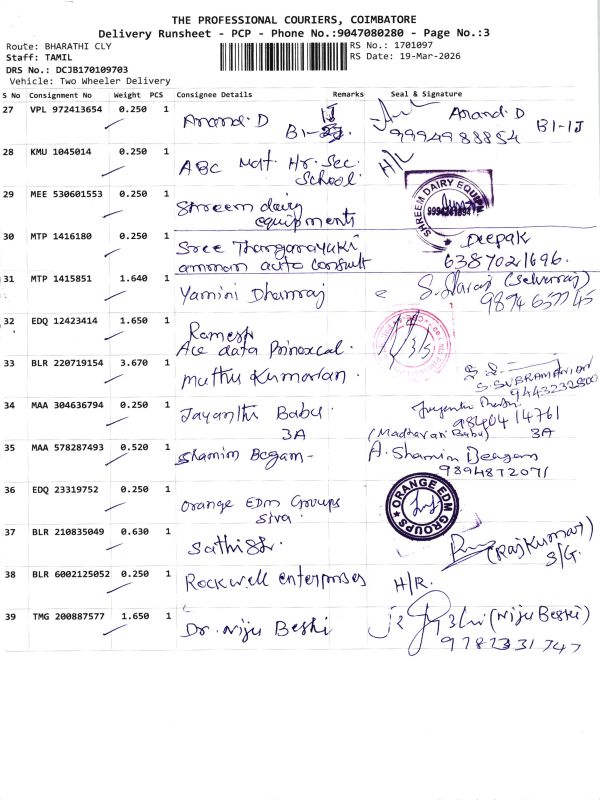 THE PROFESSIONAL COURIERS, COIMBATORE
Delivery Runsheet - PCP - Phone No.:9047080280 - Page No.:3
Route: BHARATHI CLY
RS No.: 1701097
Staff: TAMIL
RS Date: 19-Mar-2026
DRS No.: DCJB170109703
Vehicle: Two Wheeler Delivery
S No Consignment No Weight PCS Consignee Details Remarks Seal & Signature
27 VPL 972413654 0.250 1 Anand.D B1-1J Anand.D B1-1J
9994988854
28 KMU 1045014 0.250 1 ABC Mat. Hr. Sec. School H/L
29 MEE 530601553 0.250 1 Shreem dairy equipments SHREEM DAIRY EQUIPM
30 MTP 1416180 0.250 1 Sree Thanganayaki Deepak
amman auto consult 6387021696.
31 MTP 1415851 1.640 1 Yamini Dhanraj (Selvaraj)
32 EDQ 12423414 1.650 1 Ramesh
Ace data
33 BLR 220719154 3.670 1 Muthu Kumaran. S. SUBRAMANIAN
9443232800
34 MAA 304636794 0.250 1 Jayanthi Babu.
3A 9840414761
(Madhavan Babu) 3A
35 MAA 578287493 0.520 1 Shamim Begam- A. Shamim Begam
9894872071
36 EDQ 23319752 0.250 1 Orange EDM Groups ORANGE EDM GROUPS
Siva
37 BLR 210835049 0.630 1 (Rajkumar)
S/G.
38 BLR 6002125052 0.250 1 Rockwell enterprises H/R.
39 TMG 200887577 1.650 1 Dr. Niju Beshi (Niju Beshi)